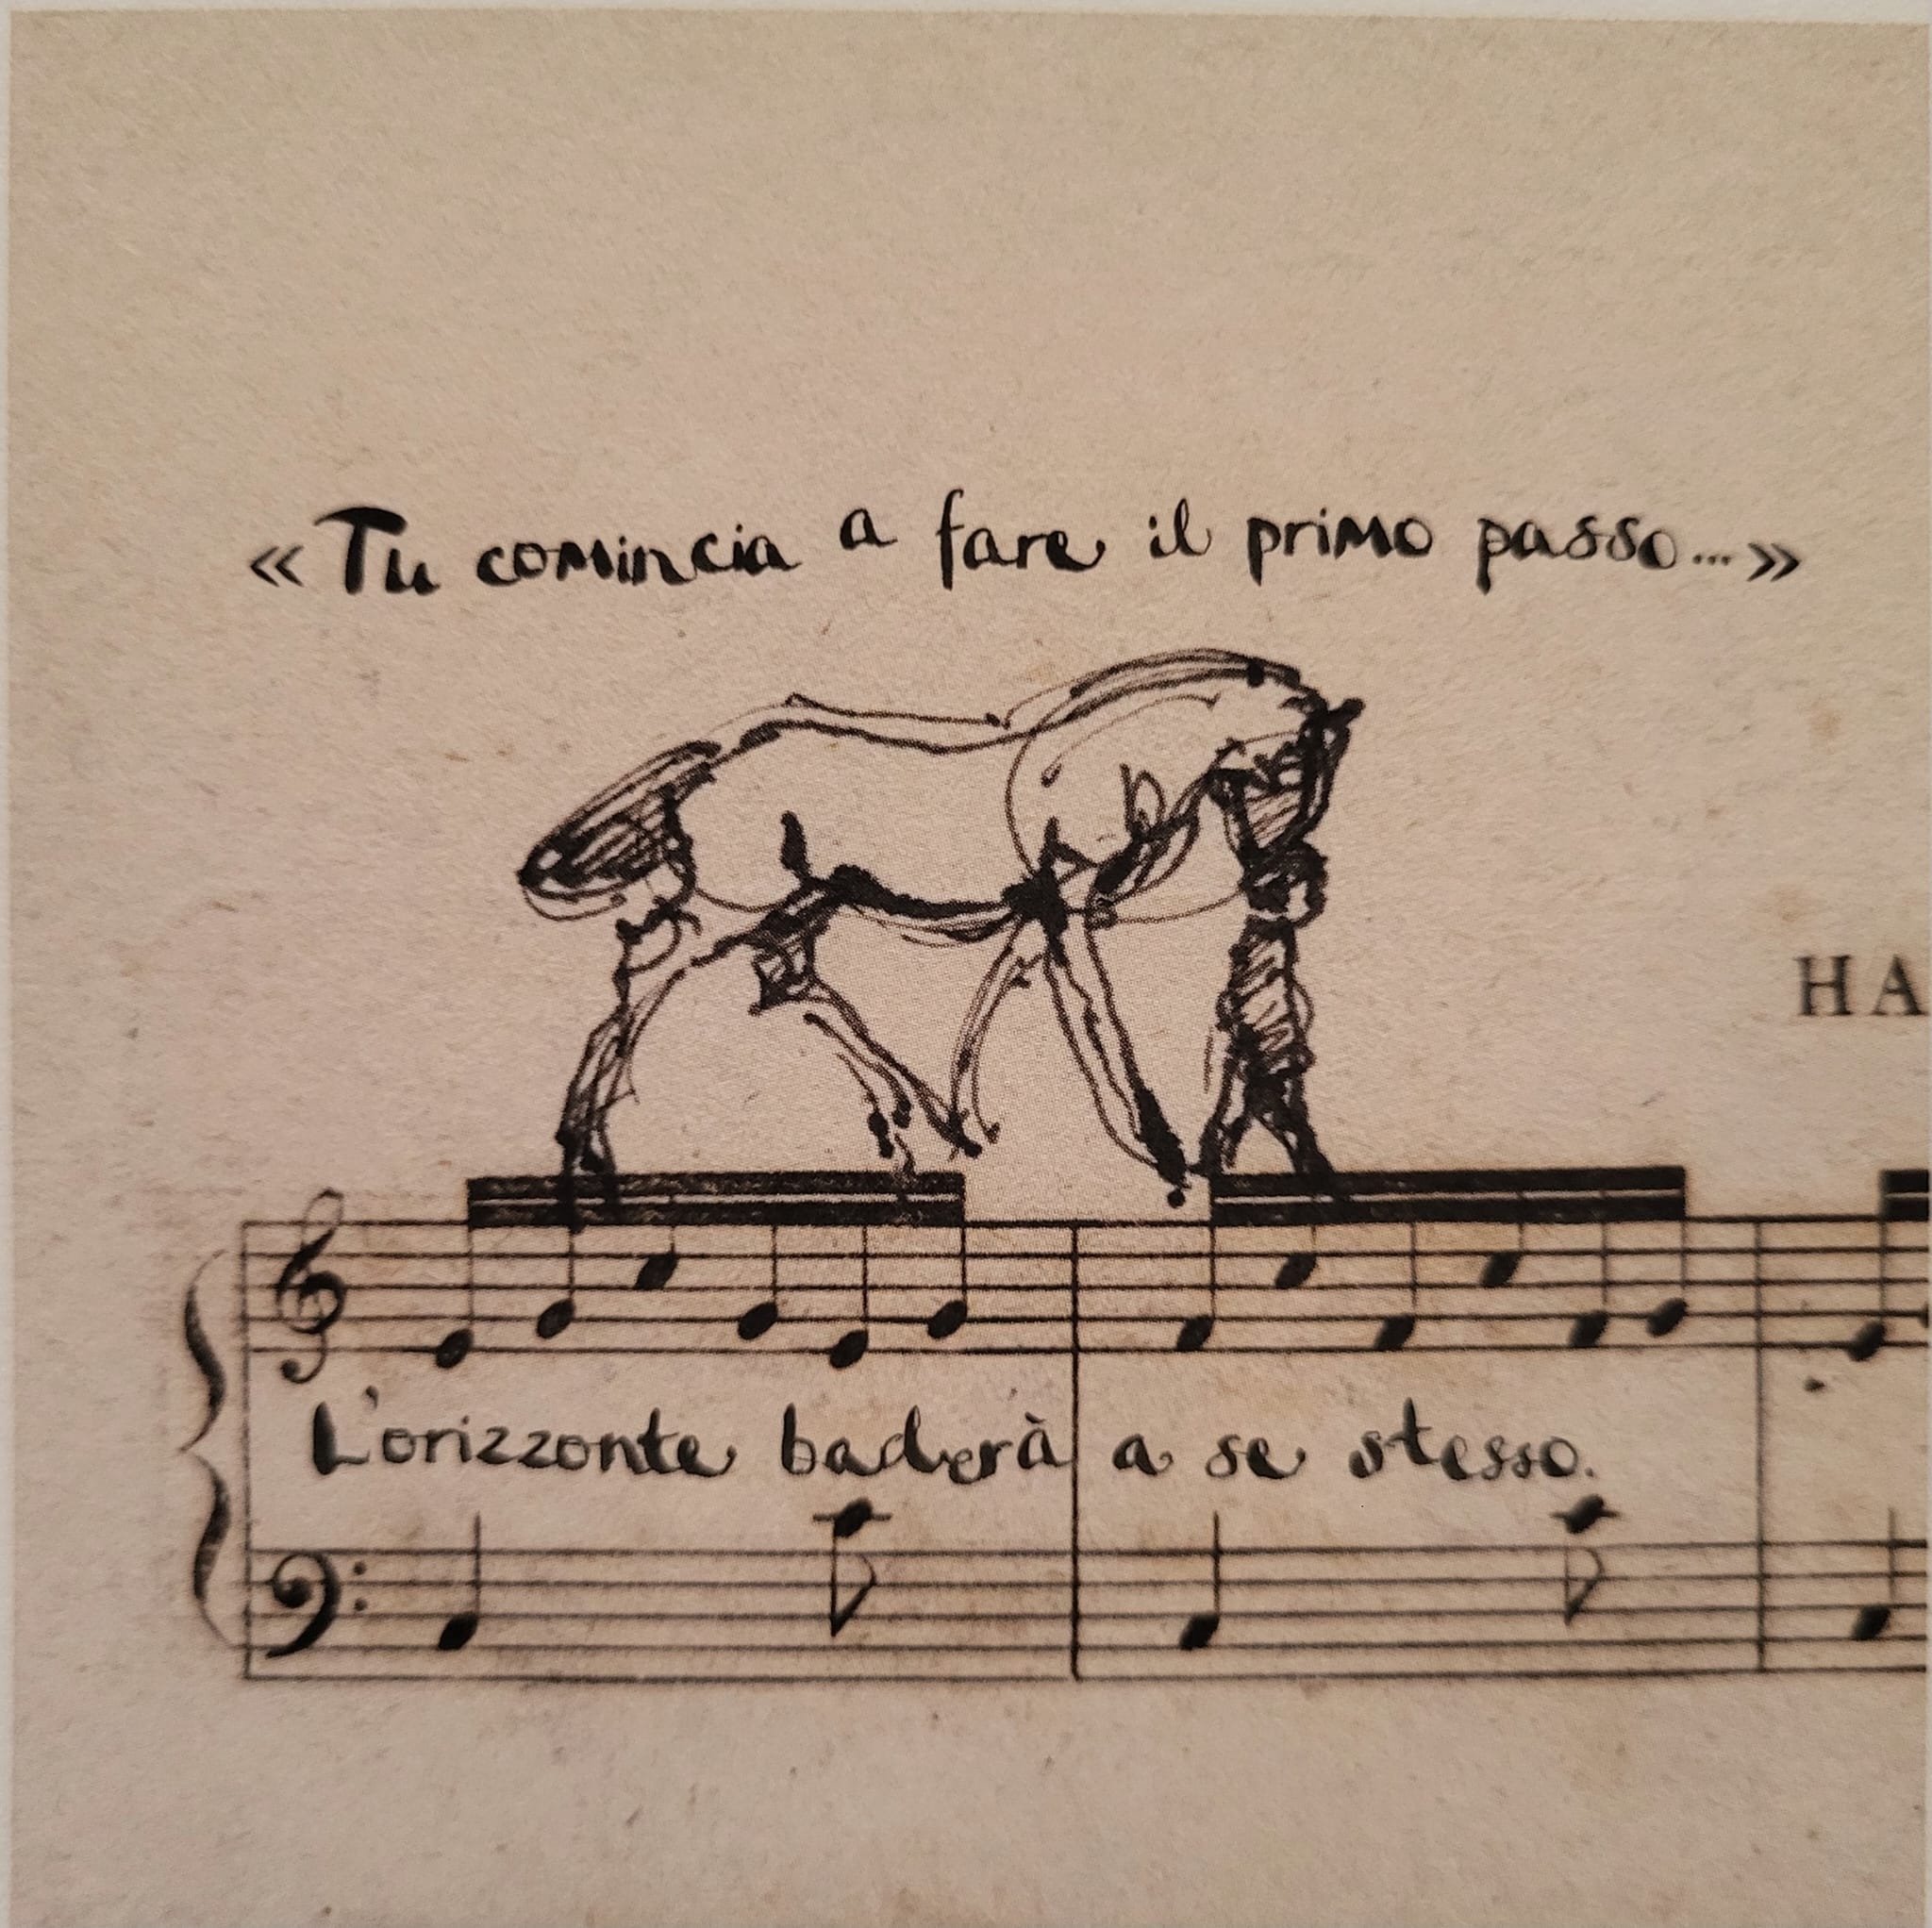 «Tu comincia a fare il primo passo...»
HA
L'orizzonte baderà a se stesso.